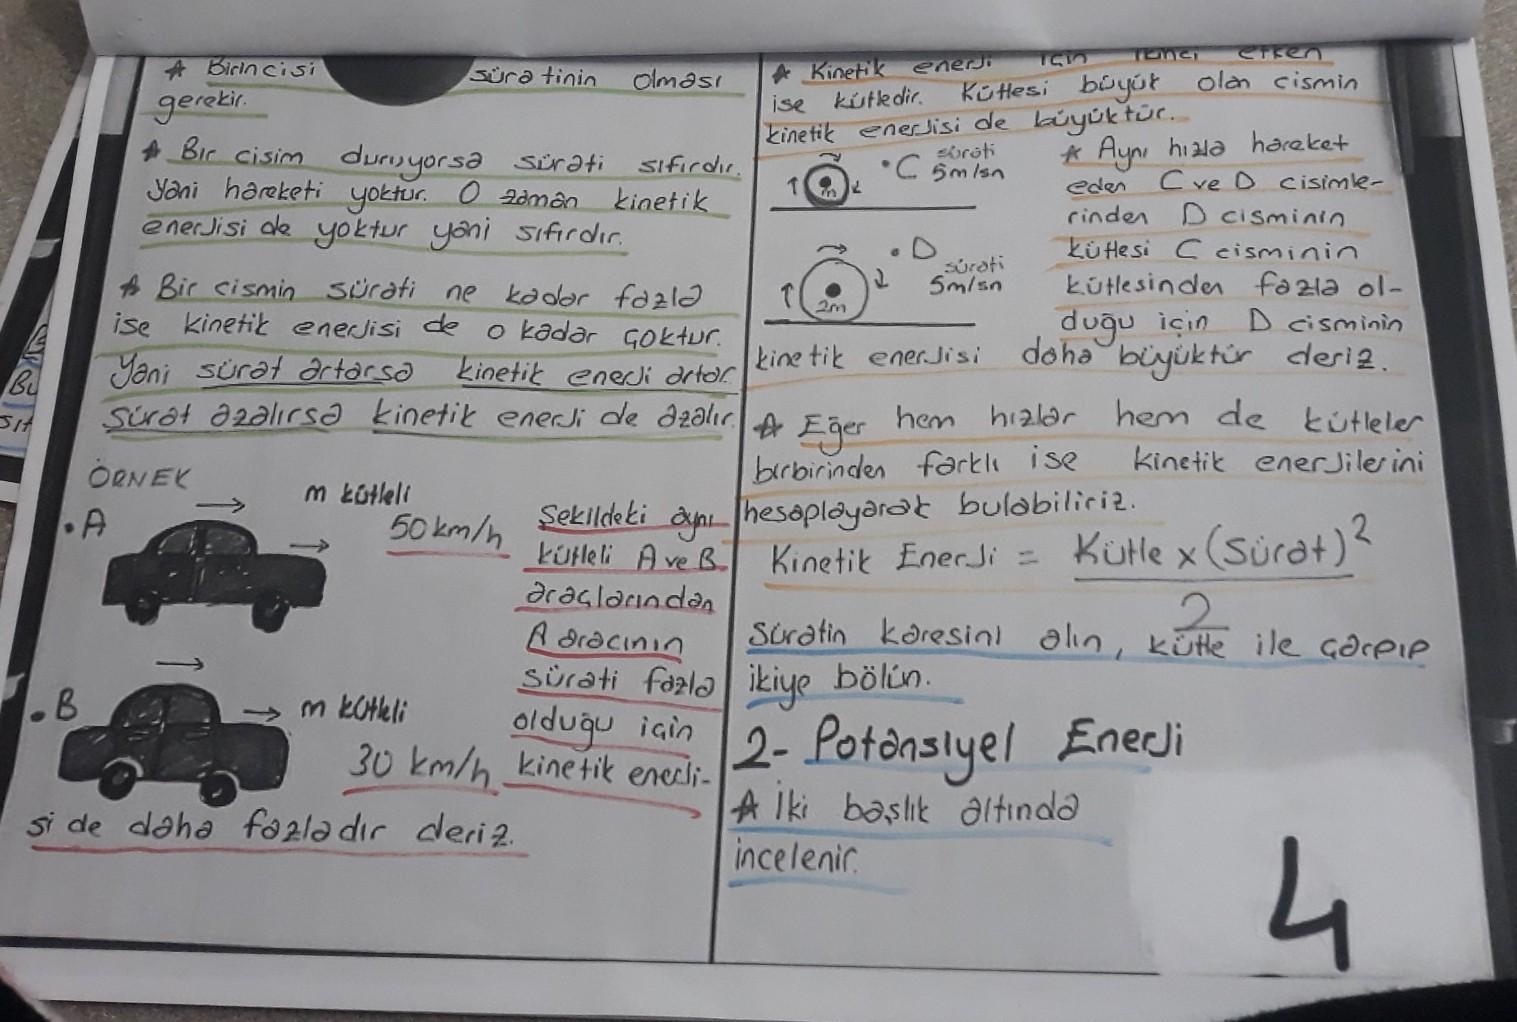 ☆ Birincisi süratinin olması
gerekir.
☆ Bir cisim duruyorsa sürati sıfırdır.
Yani hareketi yoktur. O zaman kinetik
enerjisi de yoktur yani sıfırdır.
☆ Bir cismin sürati ne kadar fazla
ise kinetik enerjisi de o kadar çoktur.
Yani sürat artarsa kinetik enerji artar.
sürat azalırsa kinetik enerji de azalır.
ÖRNEK
• A
m kütleli
50 km/h
• B
m kütleli
30 km/h
Şekildeki aynı
kütleli A ve B
araçlarından
A aracının
sürati fazla
olduğu için
kinetik enerji-
si de daha fazladır deriz.
☆ Kinetik enerji için ikinci etken
ise kütledir. Kütlesi büyük olan cismin
kinetik enerjisi de büyüktür.
m
• C sürati
5m/sn
2m
• D
sürati
5m/sn
☆ Aynı hızla hareket
eden C ve D cisimle-
rinden D cisminin
kütlesi C cisminin
kütlesinden fazla ol-
duğu için D cisminin
kinetik enerjisi daha büyüktür deriz.
☆ Eğer hem hızlar hem de kütleler
birbirinden farklı ise kinetik enerjilerini
hesaplayarak bulabiliriz.
Kinetik Enerji = Kütle x (Sürat)²
2
Süratin karesini alın, kütle ile çarpıp
ikiye bölün.
2- Potansiyel Enerji
☆ İki başlık altında
incelenir.
4